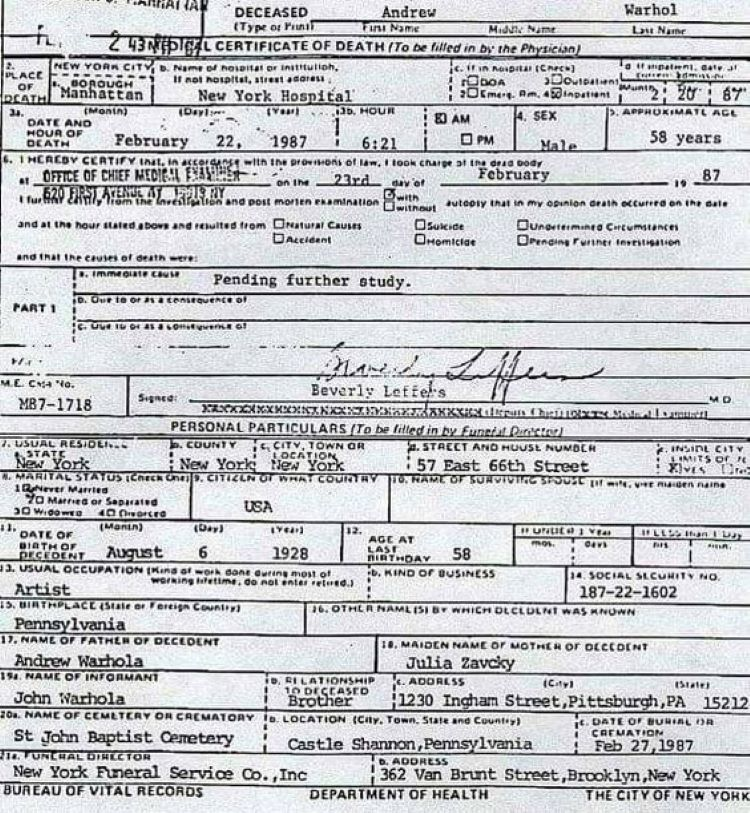 DECEASED Andrew Warhol
(Type or Print) First Name Middle Name Last Name
MEDICAL CERTIFICATE OF DEATH (To be filled in by the Physician)
2. PLACE OF DEATH NEW YORK CITY a. BOROUGH Manhattan b. Name of hospital or institution. If not hospital, street address. New York Hospital c. If in hospital (Check) 1☐DOA 3☐Outpatient 2☐Emerg. Rm. 4☒Inpatient d. If inpatient, date of current admission Month 2 20 87
3a. DATE AND HOUR OF DEATH (Month) (Day) (Year) February 22, 1987 3b. HOUR 6:21 ☒ AM ☐ PM 4. SEX Male 5. APPROXIMATE AGE 58 years
6. I HEREBY CERTIFY that, in accordance with the provisions of law, I took charge of the dead body
at OFFICE OF CHIEF MEDICAL EXAMINER on the 23rd day of February 19 87
520 FIRST AVENUE NY
I further certify from the investigation and post morten examination ☑with ☐without autopsy that in my opinion death occurred on the date
and at the hour stated above and resulted from ☐Natural Causes ☐Suicide ☐Undetermined Circumstances
☐Accident ☐Homicide ☐Pending Further Investigation
and that the causes of death were:
PART 1 a. Immediate cause Pending further study.
b. Due to or as a consequence of
c. Due to or as a consequence of
Beverly Leffers
M.E. Case No. M87-1718 Signed: Beverly Leffers M.D.
PERSONAL PARTICULARS (To be filled in by Funeral Director)
7. USUAL RESIDENCE a. STATE New York b. COUNTY New York c. CITY, TOWN OR LOCATION New York d. STREET AND HOUSE NUMBER 57 East 66th Street e. INSIDE CITY LIMITS OF ☒YES
8. MARITAL STATUS (Check One) 1☒Never Married 2☐ Married or Separated 3☐ Widowed 4☐ Divorced 9. CITIZEN OF WHAT COUNTRY USA 10. NAME OF SURVIVING SPOUSE (If wife, give maiden name
11. DATE OF BIRTH OF DECEDENT (Month) (Day) (Year) August 6 1928 12. AGE AT LAST BIRTHDAY 58 If UNDER 1 Year mos. days If LESS than 1 Day hrs. min.
13. USUAL OCCUPATION (Kind of work done during most of working lifetime, do not enter retired.) Artist b. KIND OF BUSINESS 14. SOCIAL SECURITY NO. 187-22-1602
15. BIRTHPLACE (State or Foreign Country) Pennsylvania 16. OTHER NAME(S) BY WHICH DECEDENT WAS KNOWN
17. NAME OF FATHER OF DECEDENT Andrew Warhola 18. MAIDEN NAME OF MOTHER OF DECEDENT Julia Zavcky
19a. NAME OF INFORMANT John Warhola b. RELATIONSHIP TO DECEASED Brother c. ADDRESS (City) (State) 1230 Ingham Street,Pittsburgh,PA 15212
20a. NAME OF CEMETERY OR CREMATORY St John Baptist Cemetery b. LOCATION (City, Town, State and Country) Castle Shannon,Pennsylvania c. DATE OF BURIAL OR CREMATION Feb 27,1987
21a. FUNERAL DIRECTOR New York Funeral Service Co.,Inc b. ADDRESS 362 Van Brunt Street,Brooklyn,New York
BUREAU OF VITAL RECORDS DEPARTMENT OF HEALTH THE CITY OF NEW YORK